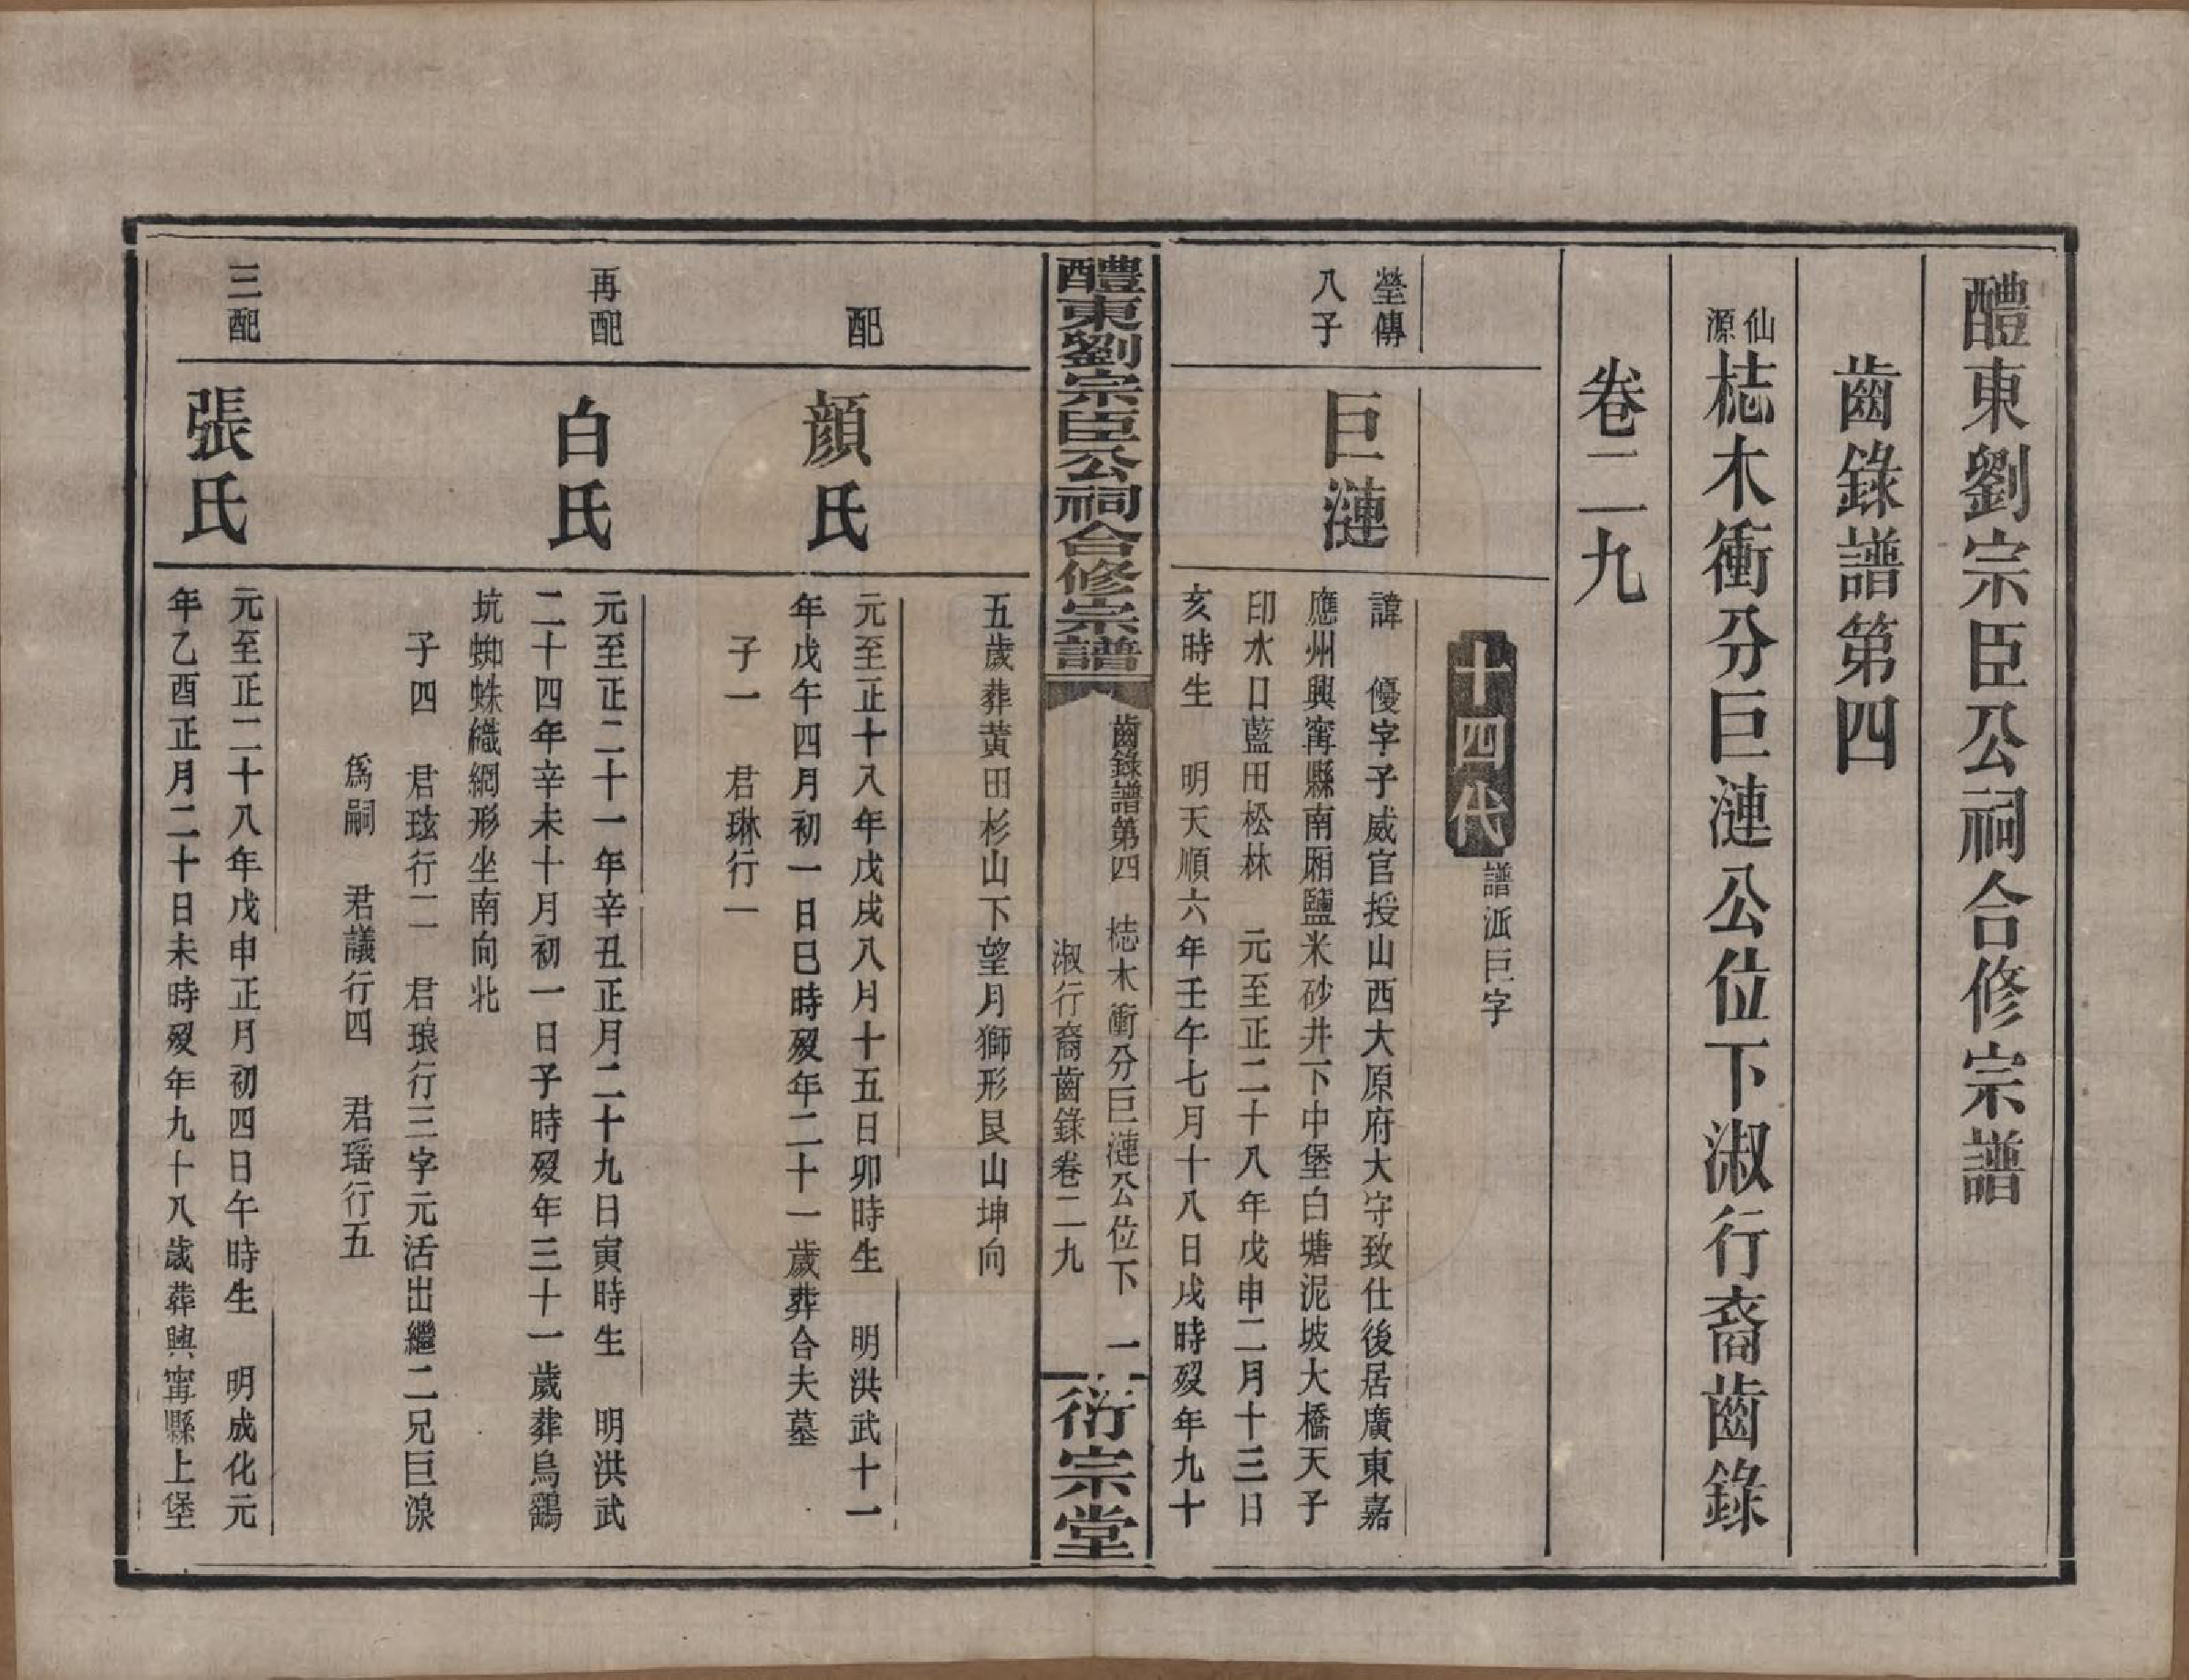 醴東劉宗臣公祠合修宗譜
齒錄譜第四
仙源梽木衝分巨漣公位下淑行裔齒錄
卷二九
十四代
譜派巨字
塋傳
八子
巨漣
諱　優字子威官授山西大原府大守致仕後居廣東嘉
應州興甯縣南厢鹽米砂井下中堡白塘泥坡大橋天子
印水口藍田松林　元至正二十八年戊申二月十三日
亥時生　明天順六年壬午七月十八日戌時殁年九十
醴東劉宗臣公祠合修宗譜
齒錄譜第四　梽木衝分巨漣公位下　一
淑行裔齒錄卷二九
衍宗堂
五歲葬黃田杉山下望月獅形艮山坤向
配
顔氏
元至正十八年戊戌八月十五日卯時生　明洪武十一
年戊午四月初一日巳時殁年二十一歲葬合夫墓
子一　君琳行一
再配
白氏
元至正二十一年辛丑正月二十九日寅時生　明洪武
二十四年辛未十月初一日子時殁年三十一歲葬烏鷂
坑蜘蛛織網形坐南向北
子四　君玹行二　君琅行三字元活出繼二兄巨湶
爲嗣　君議行四　君瑶行五
三配
張氏
元至正二十八年戊申正月初四日午時生　明成化元
年乙酉正月二十日未時殁年九十八歲葬興甯縣上堡